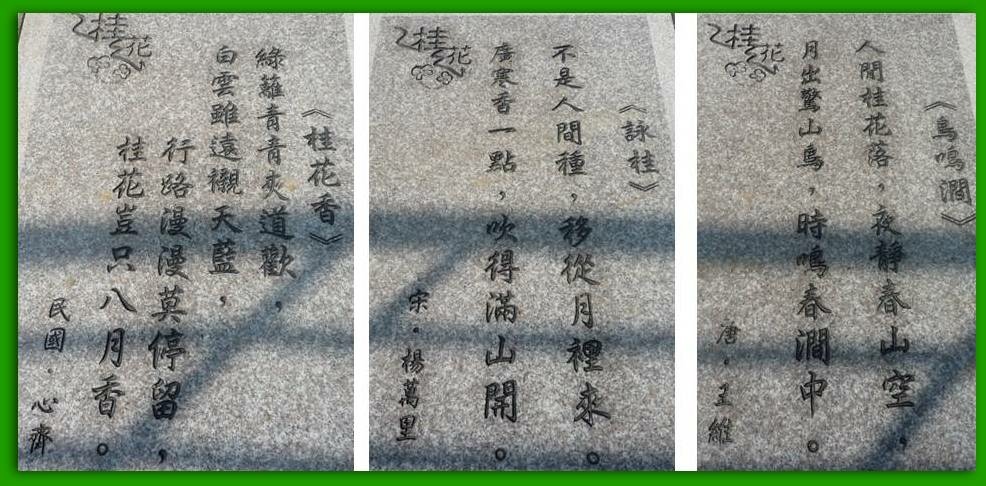 桂花
《桂花香》
綠蘺青青夾道歡，
白雲雖遠襯天藍，
行路漫漫莫停留，
桂花豈只八月香。
民國．心齋
桂花
《詠桂》
不是人間種，移從月裡來。
廣寒香一點，吹得滿山開。
宋．楊萬里
桂花
《鳥鳴澗》
人閒桂花落，夜靜春山空，
月出驚山鳥，時鳴春澗中。
唐．王維